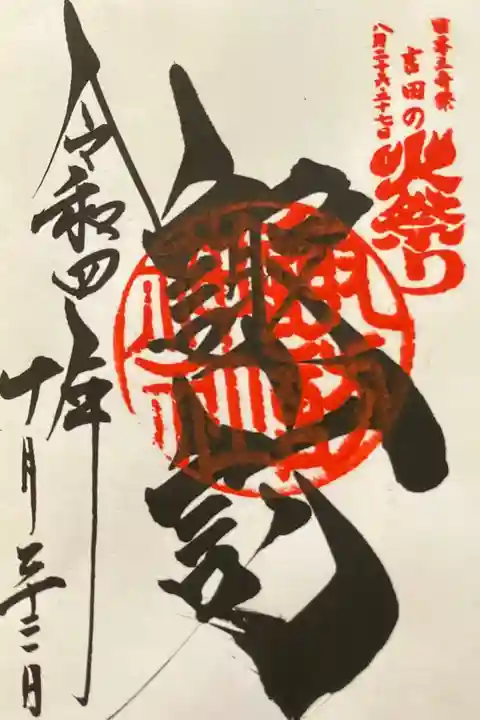 日本三奇祭
吉田の火祭り
八月二十六・二十七日
諏訪
令和四年
十月二十二日